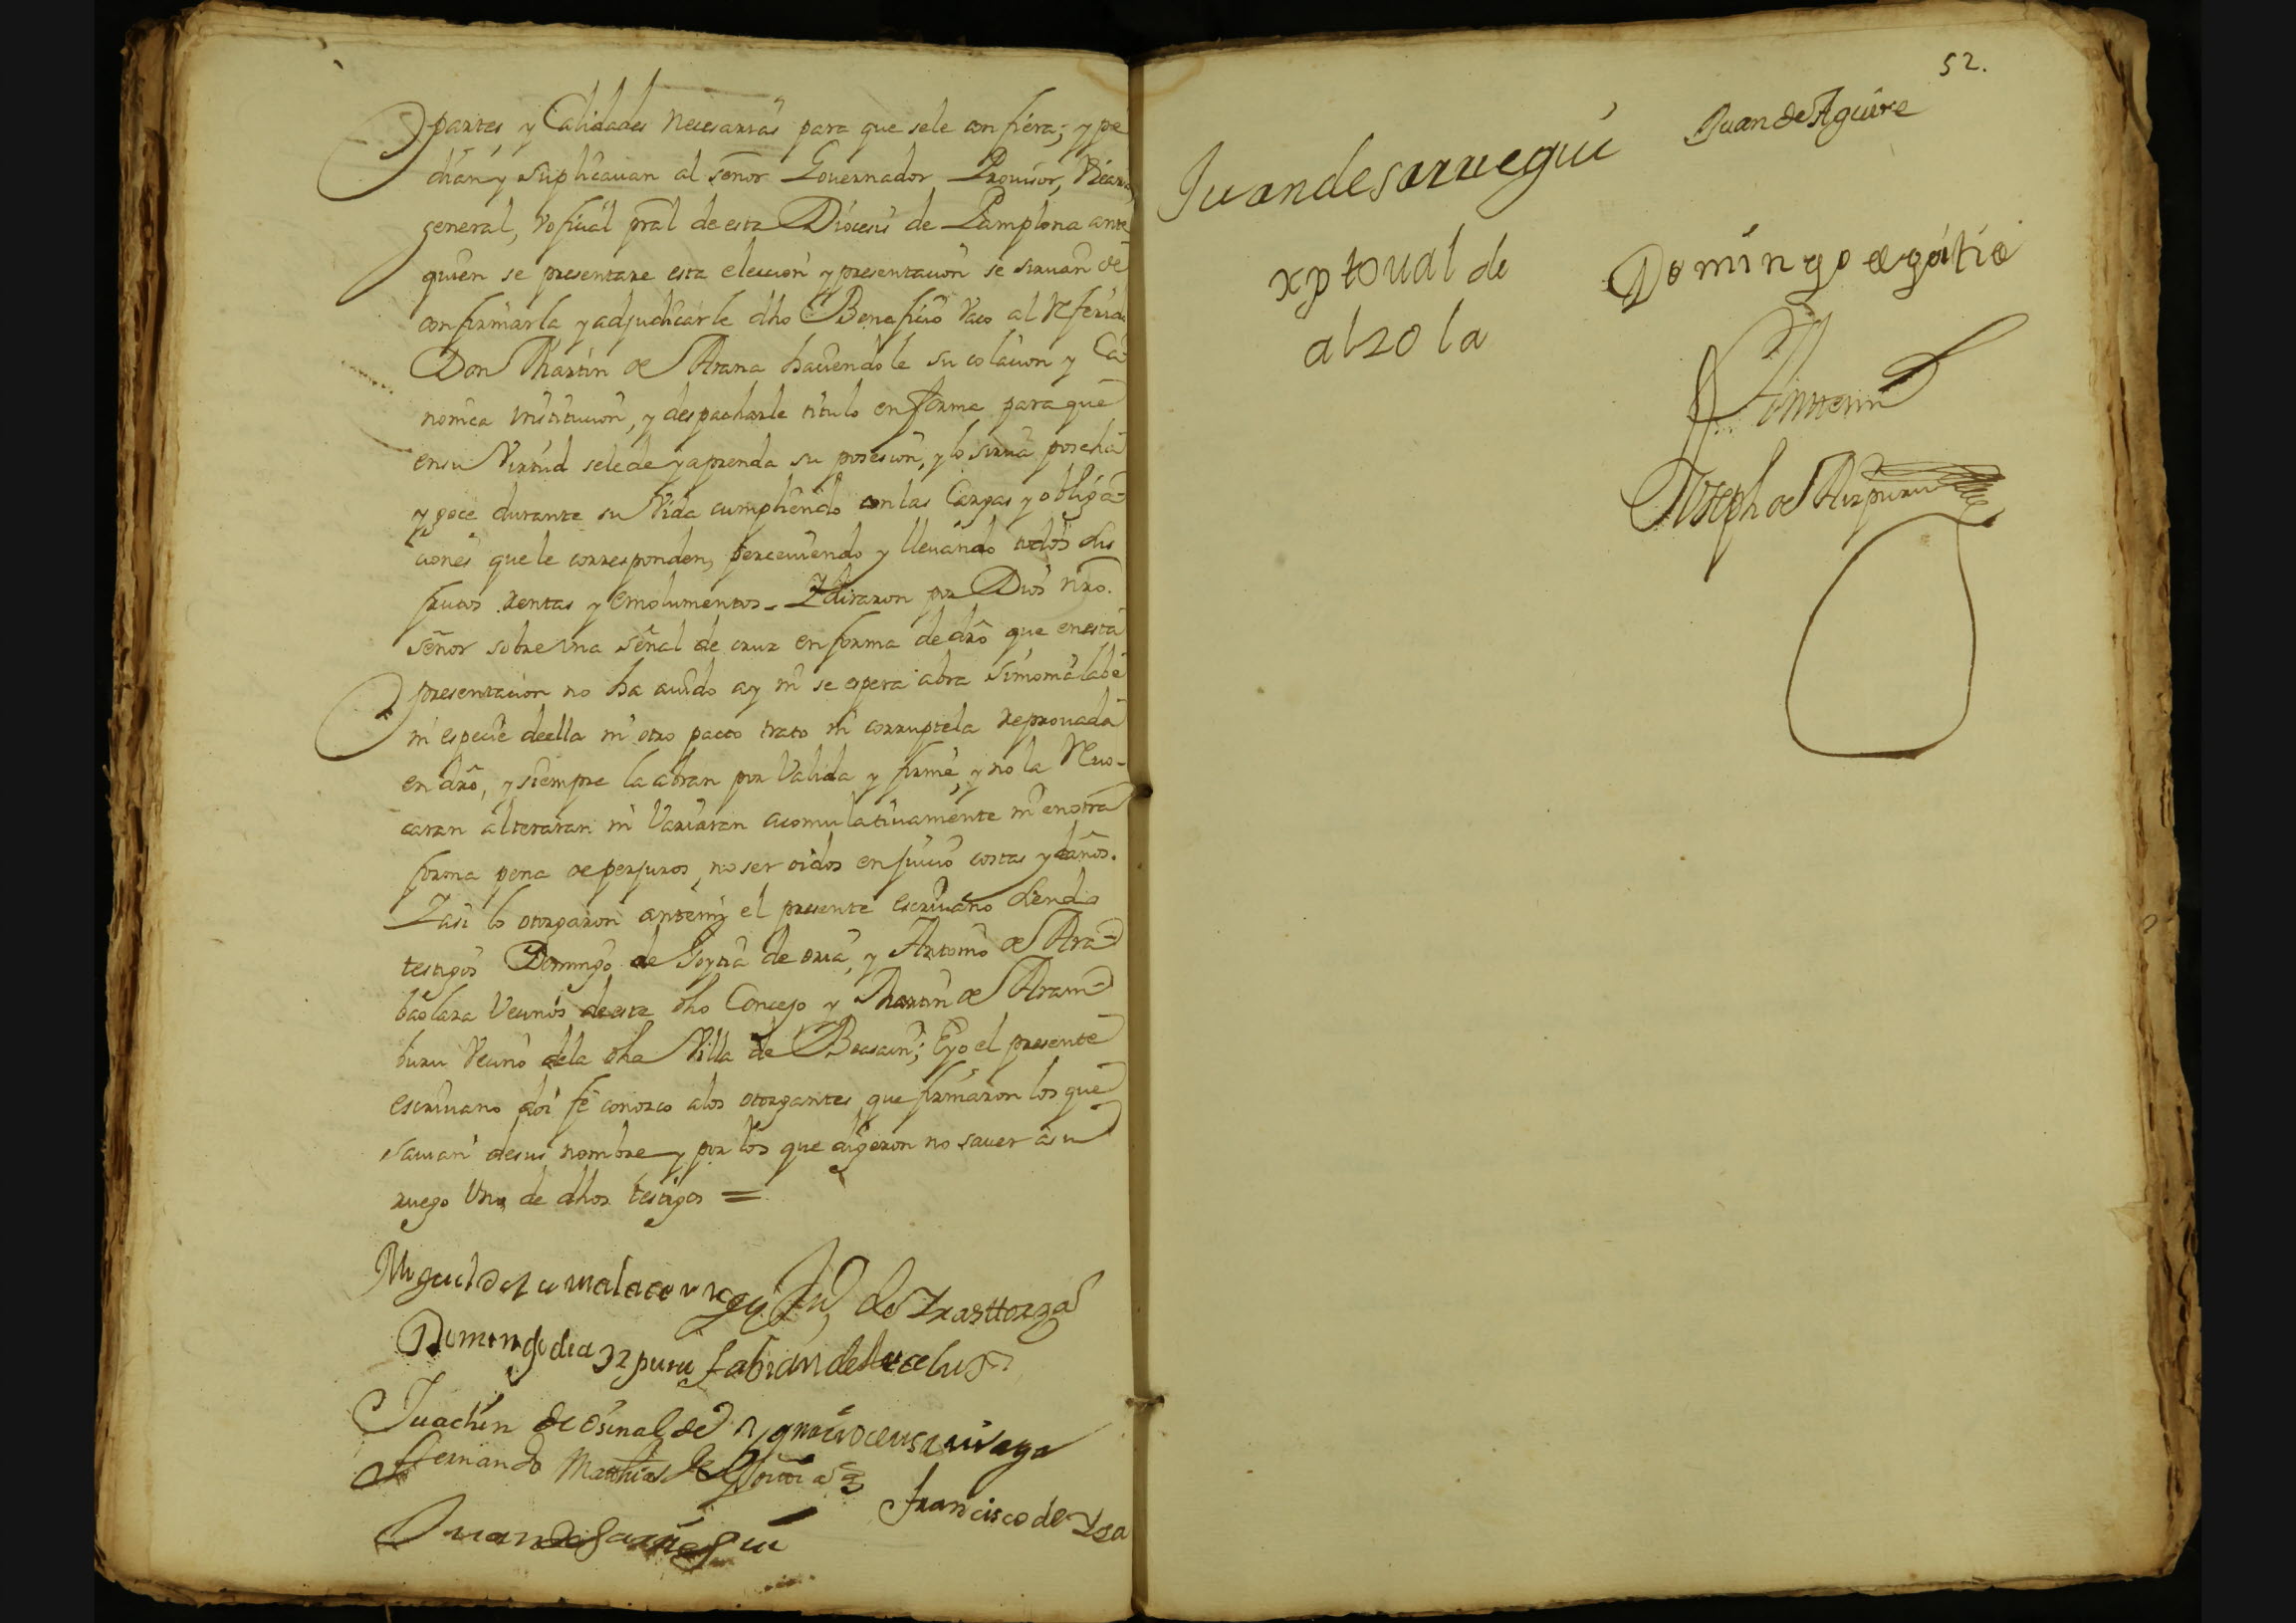 partes, y Calidades necesarias para que sele confiera; y pe
dian y suplicauan al señor Gouernador Prouisor, Vicario
general, v oficial pral de esta Diocesis de Pamplona ante
quien se presentare esta eleccion y presentacion se siruan de
confirmarla y adjudicarle dho Beneficio Vaco al referido
Don Martin de Arana haciendole su colacion y Ca
nonica institucion, y despacharle titulo en forma para que
en su Virtud sele de y aprenda su posesion, y lo sirua poseha
y goce durante su Vida cumpliendo con las Cargas y obliga-
ciones que le corresponden, perceuiendo y lleuando todos sus
frutos rentas y emolumentos_ Y juraron por Dios nro.
señor sobre vna señal de cruz en forma de dro que en esta
presentacion no ha auido ay ni se espera abra simonia labe
ni especie de ella ni otro pacto trato ni corruptela reprouada
en dro, y siempre la abran por Valida y firme, y no la reuo-
caran alteraran ni Variaran acomulatiuamente ni en otra
forma pena de perjuros, no ser oidos en juicio costas y daños.
Y asi lo otorgaron antemi el presente escriuano siendo
testigos Domingo de Goytia de oria, y Antonio de Ara-
baolaza Vecinos de este dho Concejo y Martin de Aram-
buru Vecino dela dha Villa de Beasain; E yo el presente
escriuano doi fe conozco alos otorgantes que firmaron los que
sauian de sus nombre y por los que digeron no sauer a su
ruego Vno de dhos testigos =
Miguel de Zumalacarregui Juº de Yrasttorza
Domingo de Aizpuru fabian de
Juachin de osinalde Ygnacio de usurviaga
Fernando Matthias de Goitia
Francisco de Ysa
Juan de Sarriegui
52.
Juan de Aguirre
Juan de sarriegui
xptoual de
alzola
Domingo de goitia
Antemi
Joseph de Aizpuru